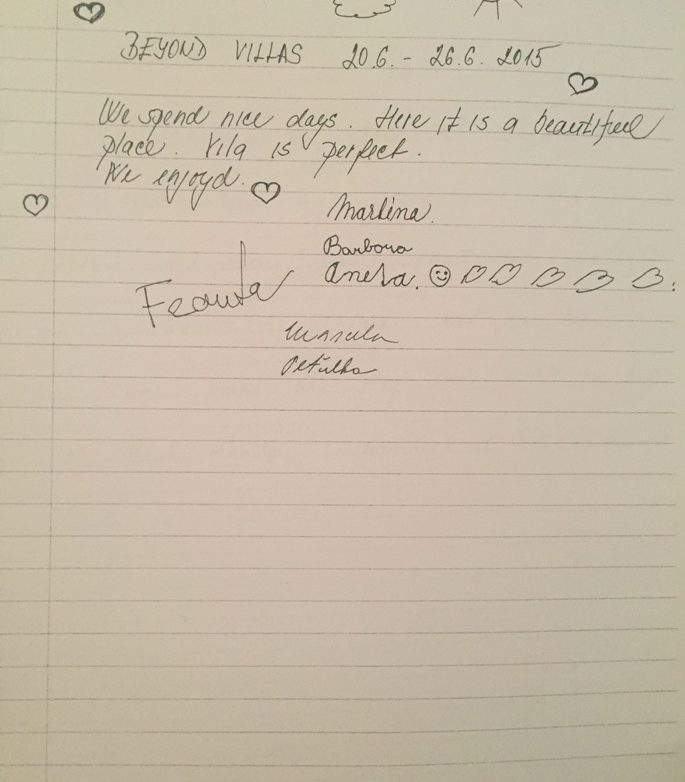 BEYOND VILLAS 20.6. - 26.6. 2015
We spend nice days. Here it is a beautifull
place. Vila is perfect.
We enjoyd.
Martina.
Barbora
Aneta.